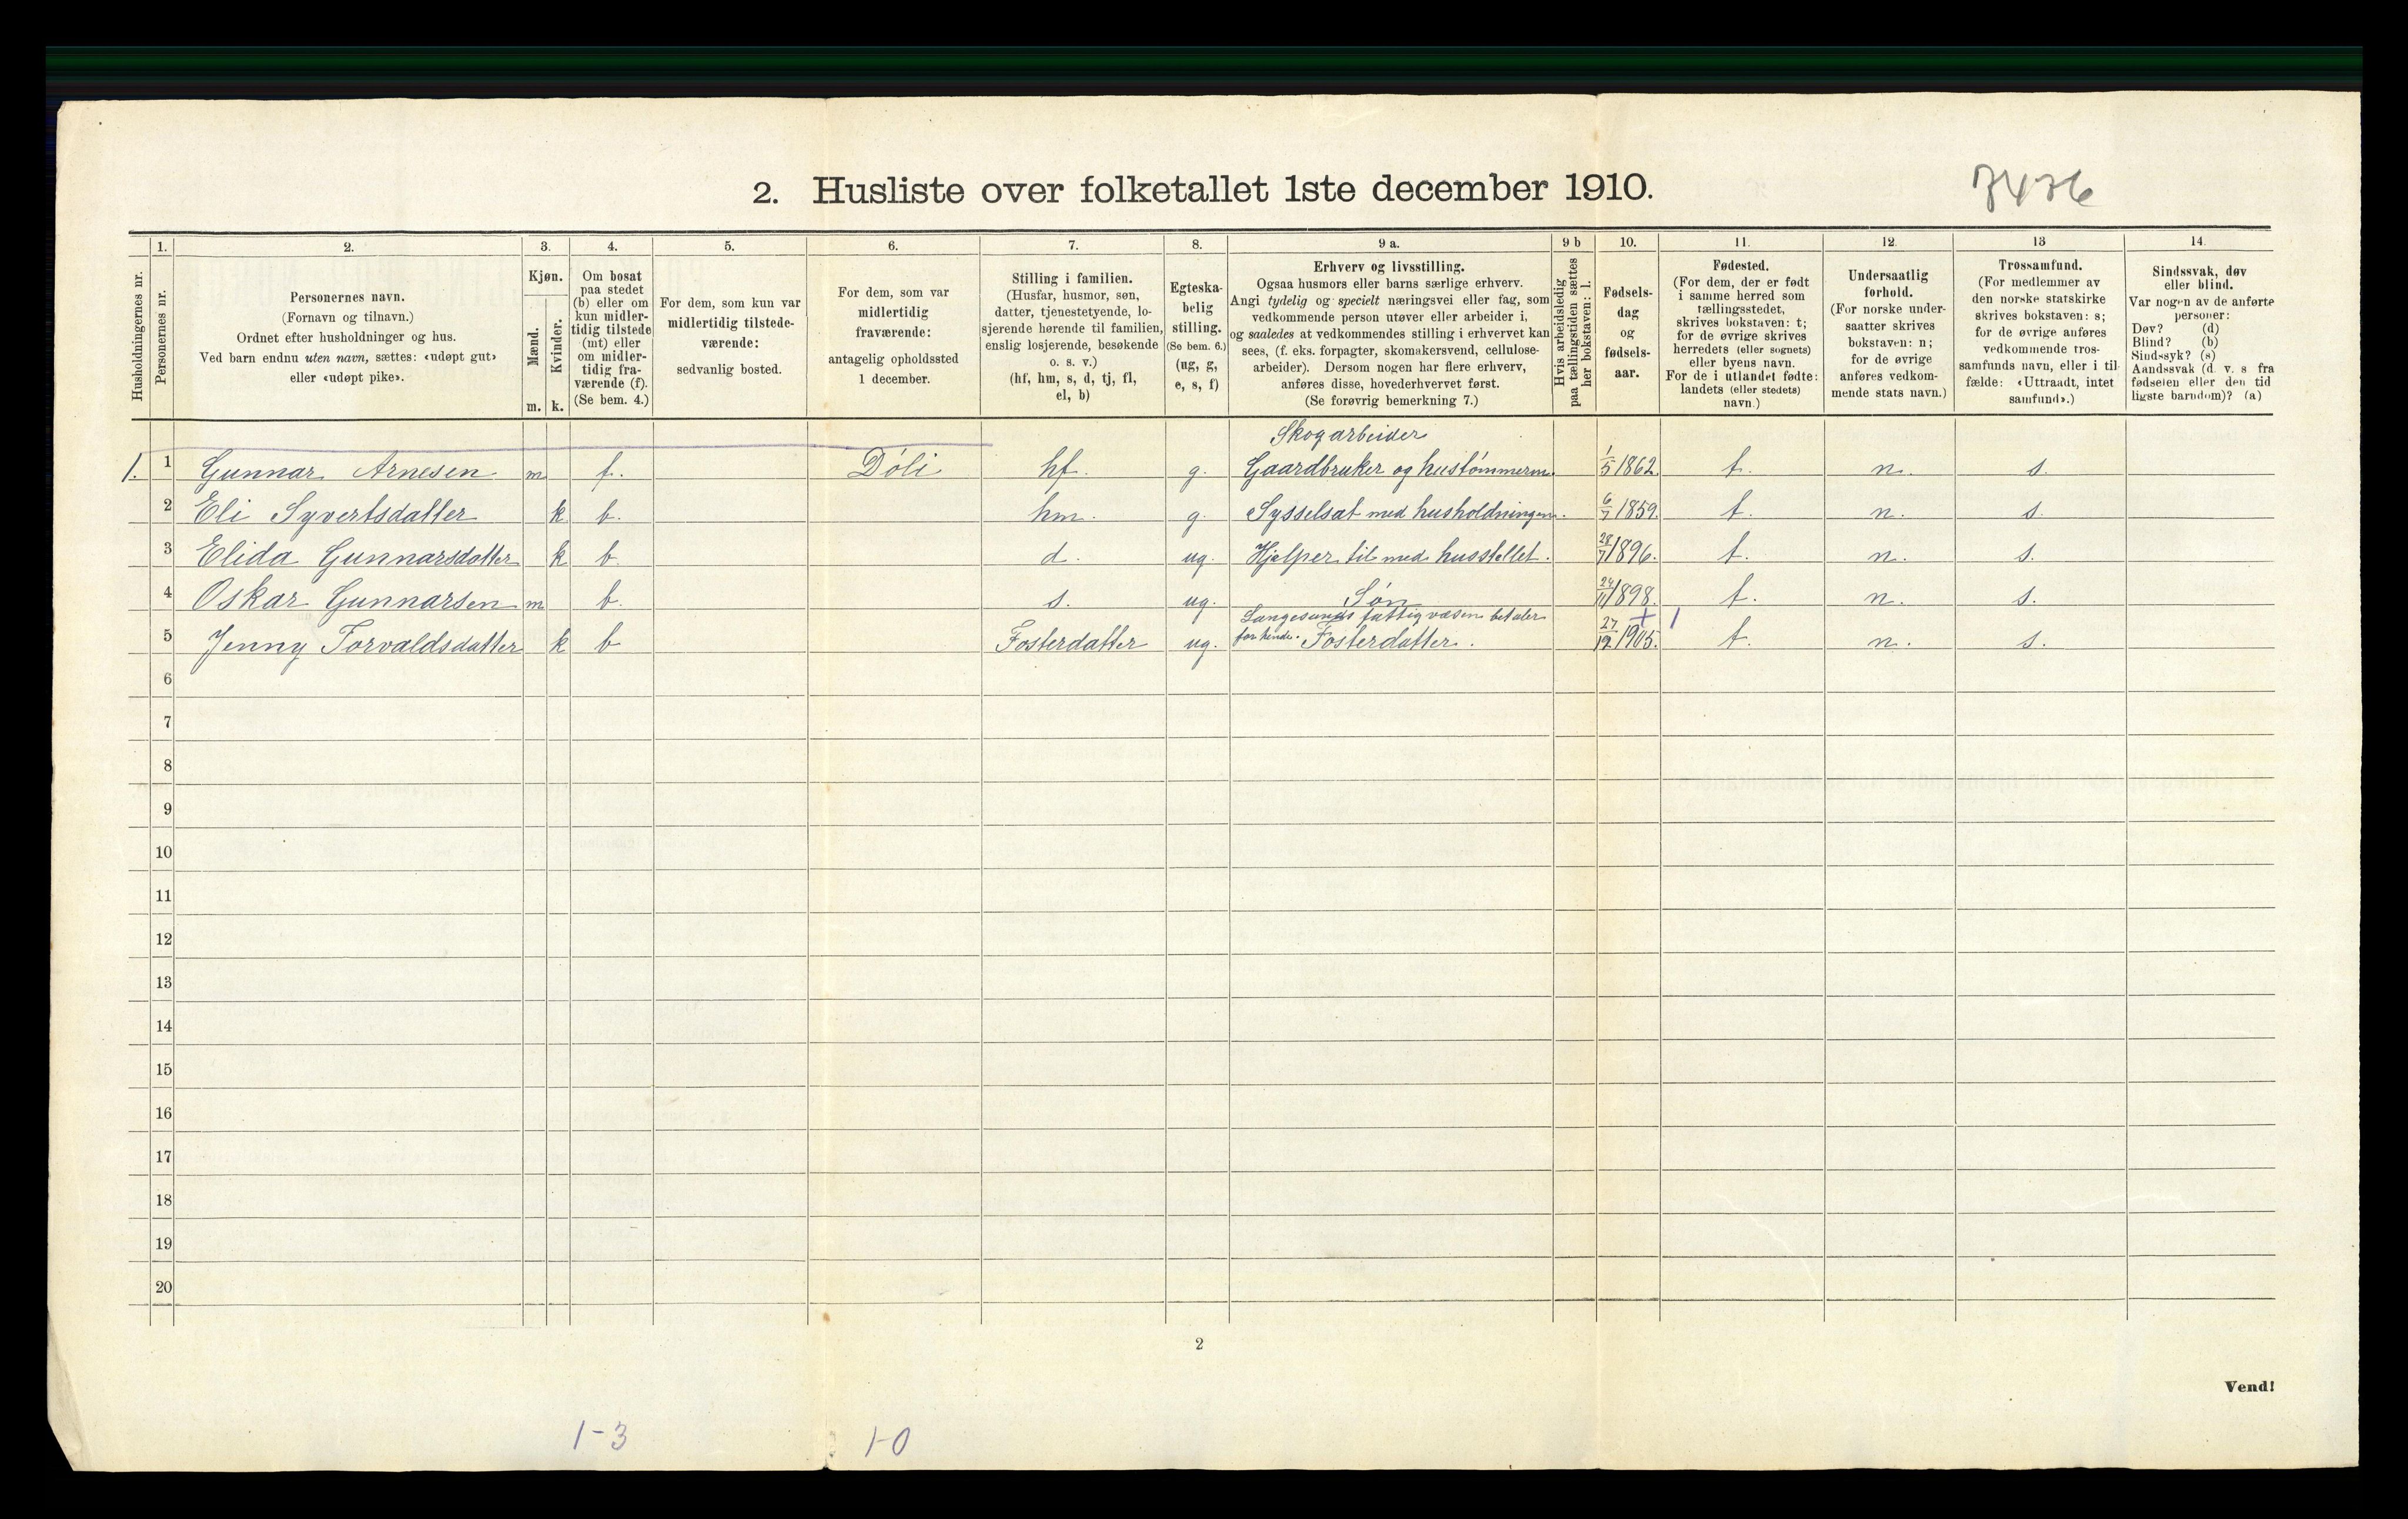 2. Husliste over folketallet 1ste december 1910.
7476
Husholdningernes nr.
1.
Personernes nr.
2.
Personernes navn.
(Fornavn og tilnavn.)
Ordnet efter husholdninger og hus.
Ved barn endnu uten navn, sættes: «udøpt gut»
eller «udøpt pike».
3.
Kjøn.
Mænd.
m.
Kvinder.
k.
4.
Om bosat
paa stedet
(b) eller om
kun midler-
tidig tilstede
(mt) eller
om midler-
tidig fra-
værende (f).
(Se bem. 4.)
5.
For dem, som kun var
midlertidig tilstede-
værende:
sedvanlig bosted.
6.
For dem, som var
midlertidig
fraværende:
antagelig opholdssted
1 december.
7.
Stilling i familien.
(Husfar, husmor, søn,
datter, tjenestetyende, lo-
sjerende hørende til familien,
enslig losjerende, besøkende
o. s. v.)
(hf, hm, s, d, tj, fl,
el, b)
8.
Egteska-
belig
stilling.
(Se bem. 6.)
(ug, g,
e, s, f)
9 a.
Erhverv og livsstilling.
Ogsaa husmors eller barns særlige erhverv.
Angi tydelig og specielt næringsvei eller fag, som
vedkommende person utøver eller arbeider i,
og saaledes at vedkommendes stilling i erhvervet kan
sees, (f. eks. forpagter, skomakersvend, cellulose-
arbeider). Dersom nogen har flere erhverv,
anføres disse, hovederhvervet først.
(Se forøvrig bemerkning 7.)
9 b
Hvis arbeidsledig
paa tællingstiden sættes
her bokstaven: l.
10.
Fødsels-
dag
og
fødsels-
aar.
11.
Fødested.
(For dem, der er født
i samme herred som
tællingsstedet,
skrives bokstaven: t;
for de øvrige skrives
herredets (eller sognets)
eller byens navn.
For de i utlandet fødte:
landets (eller stedets)
navn.)
12.
Undersaatlig
forhold.
(For norske under-
saatter skrives
bokstaven: n;
for de øvrige
anføres vedkom-
mende stats navn.)
13
Trossamfund.
(For medlemmer av
den norske statskirke
skrives bokstaven: s;
for de øvrige anføres
vedkommende tros-
samfunds navn, eller i til-
fælde: «Uttraadt, intet
samfund».)
14.
Sindssvak, døv
eller blind.
Var nogen av de anførte
personer:
Døv? (d)
Blind? (b)
Sindssyk? (s)
Aandssvak (d. v. s. fra
fødselen eller den tid-
ligste barndom)? (a)
Skogarbeider
1. 1 Gunnar Arnesen m f. Döli hf. g. Gaardbruker og hustömmerm. 1/5 1862. t. n. s.
2 Eli Syvertsdatter k b. hm. g. Sysselsat med husholdningen. 6/7 1859. t. n. s.
3 Elida Gunnarsdatter k b. d. ug. Hjelper til med husstellet. 28/7 1896. t. n. s.
4 Oskar Gunnarsen m b. s. ug. Sön 24/11 1898. t. n. s.
Langesunds fattigvæsen betaler + 1
5 Jenny Torvaldsdatter k b Fosterdatter ug. for hende. Fosterdatter. 27/12 1905. t. n. s.
6
7
8
9
10
11
12
13
14
15
16
17
18
19
20
2
Vend!
1-3 1-0